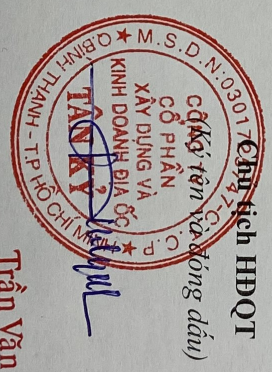 Chủ tịch HĐQT
(Ký tên và đóng dấu)
M.S.D.N:0301
C.T.C.P
CÔNG
CỔ PHẦN
XÂY DỰNG VÀ
KINH DOANH ĐỊA ỐC
TÂN KỶ
Q.BÌNH THẠNH - T.P HỒ CHÍ MINH
Trần Văn